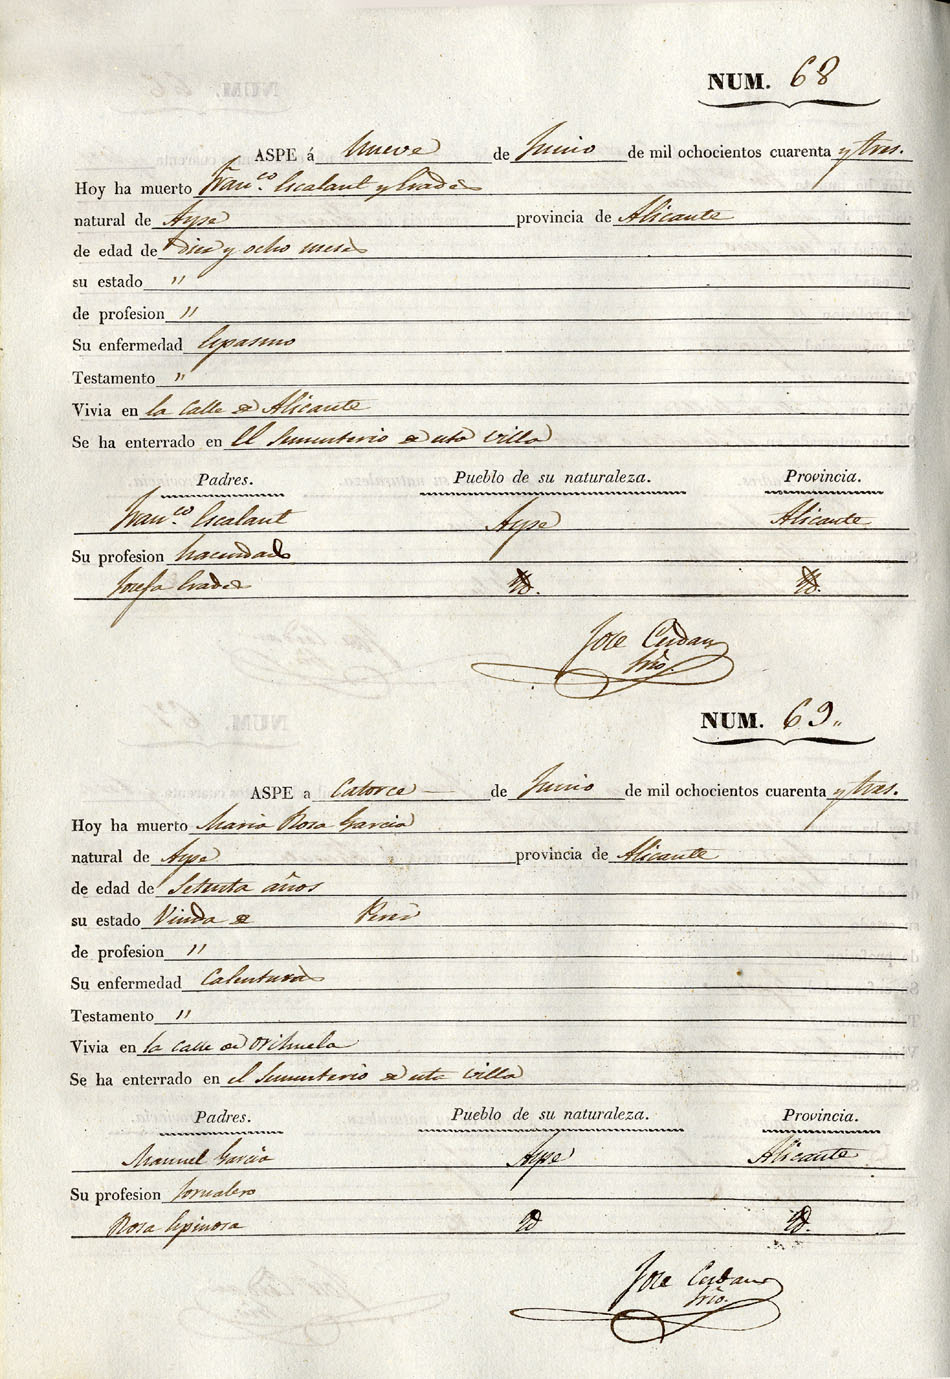 NUM. 68
ASPE á Nueve de Junio de mil ochocientos cuarenta y tres.
Hoy ha muerto Fran.co Escalant y
natural de Aspe provincia de Alicante
de edad de Dies y ocho meses
su estado "
de profesion "
Su enfermedad Espasmo
Testamento "
Vivia en la calle de Alicante
Se ha enterrado en El Sementerio de esta villa
Padres. Pueblo de su naturaleza. Provincia.
Fran.co Escalant Aspe Alicante
Su profesion hacendado
Josefa Yd. Yd.
Jose Cerdan
Srio.
NUM. 69.
ASPE a Catorce de Junio de mil ochocientos cuarenta y tres.
Hoy ha muerto Maria Rosa Garcia
natural de Aspe provincia de Alicante
de edad de Setenta años
su estado Viuda de
de profesion "
Su enfermedad Calenturas
Testamento "
Vivia en la calle de Orihuela
Se ha enterrado en el Sementerio de esta villa
Padres. Pueblo de su naturaleza. Provincia.
Manuel Garcia Aspe Alicante
Su profesion Jornalero
Rosa Espinosa Yd Yd.
Jose Cerdan
Srio.